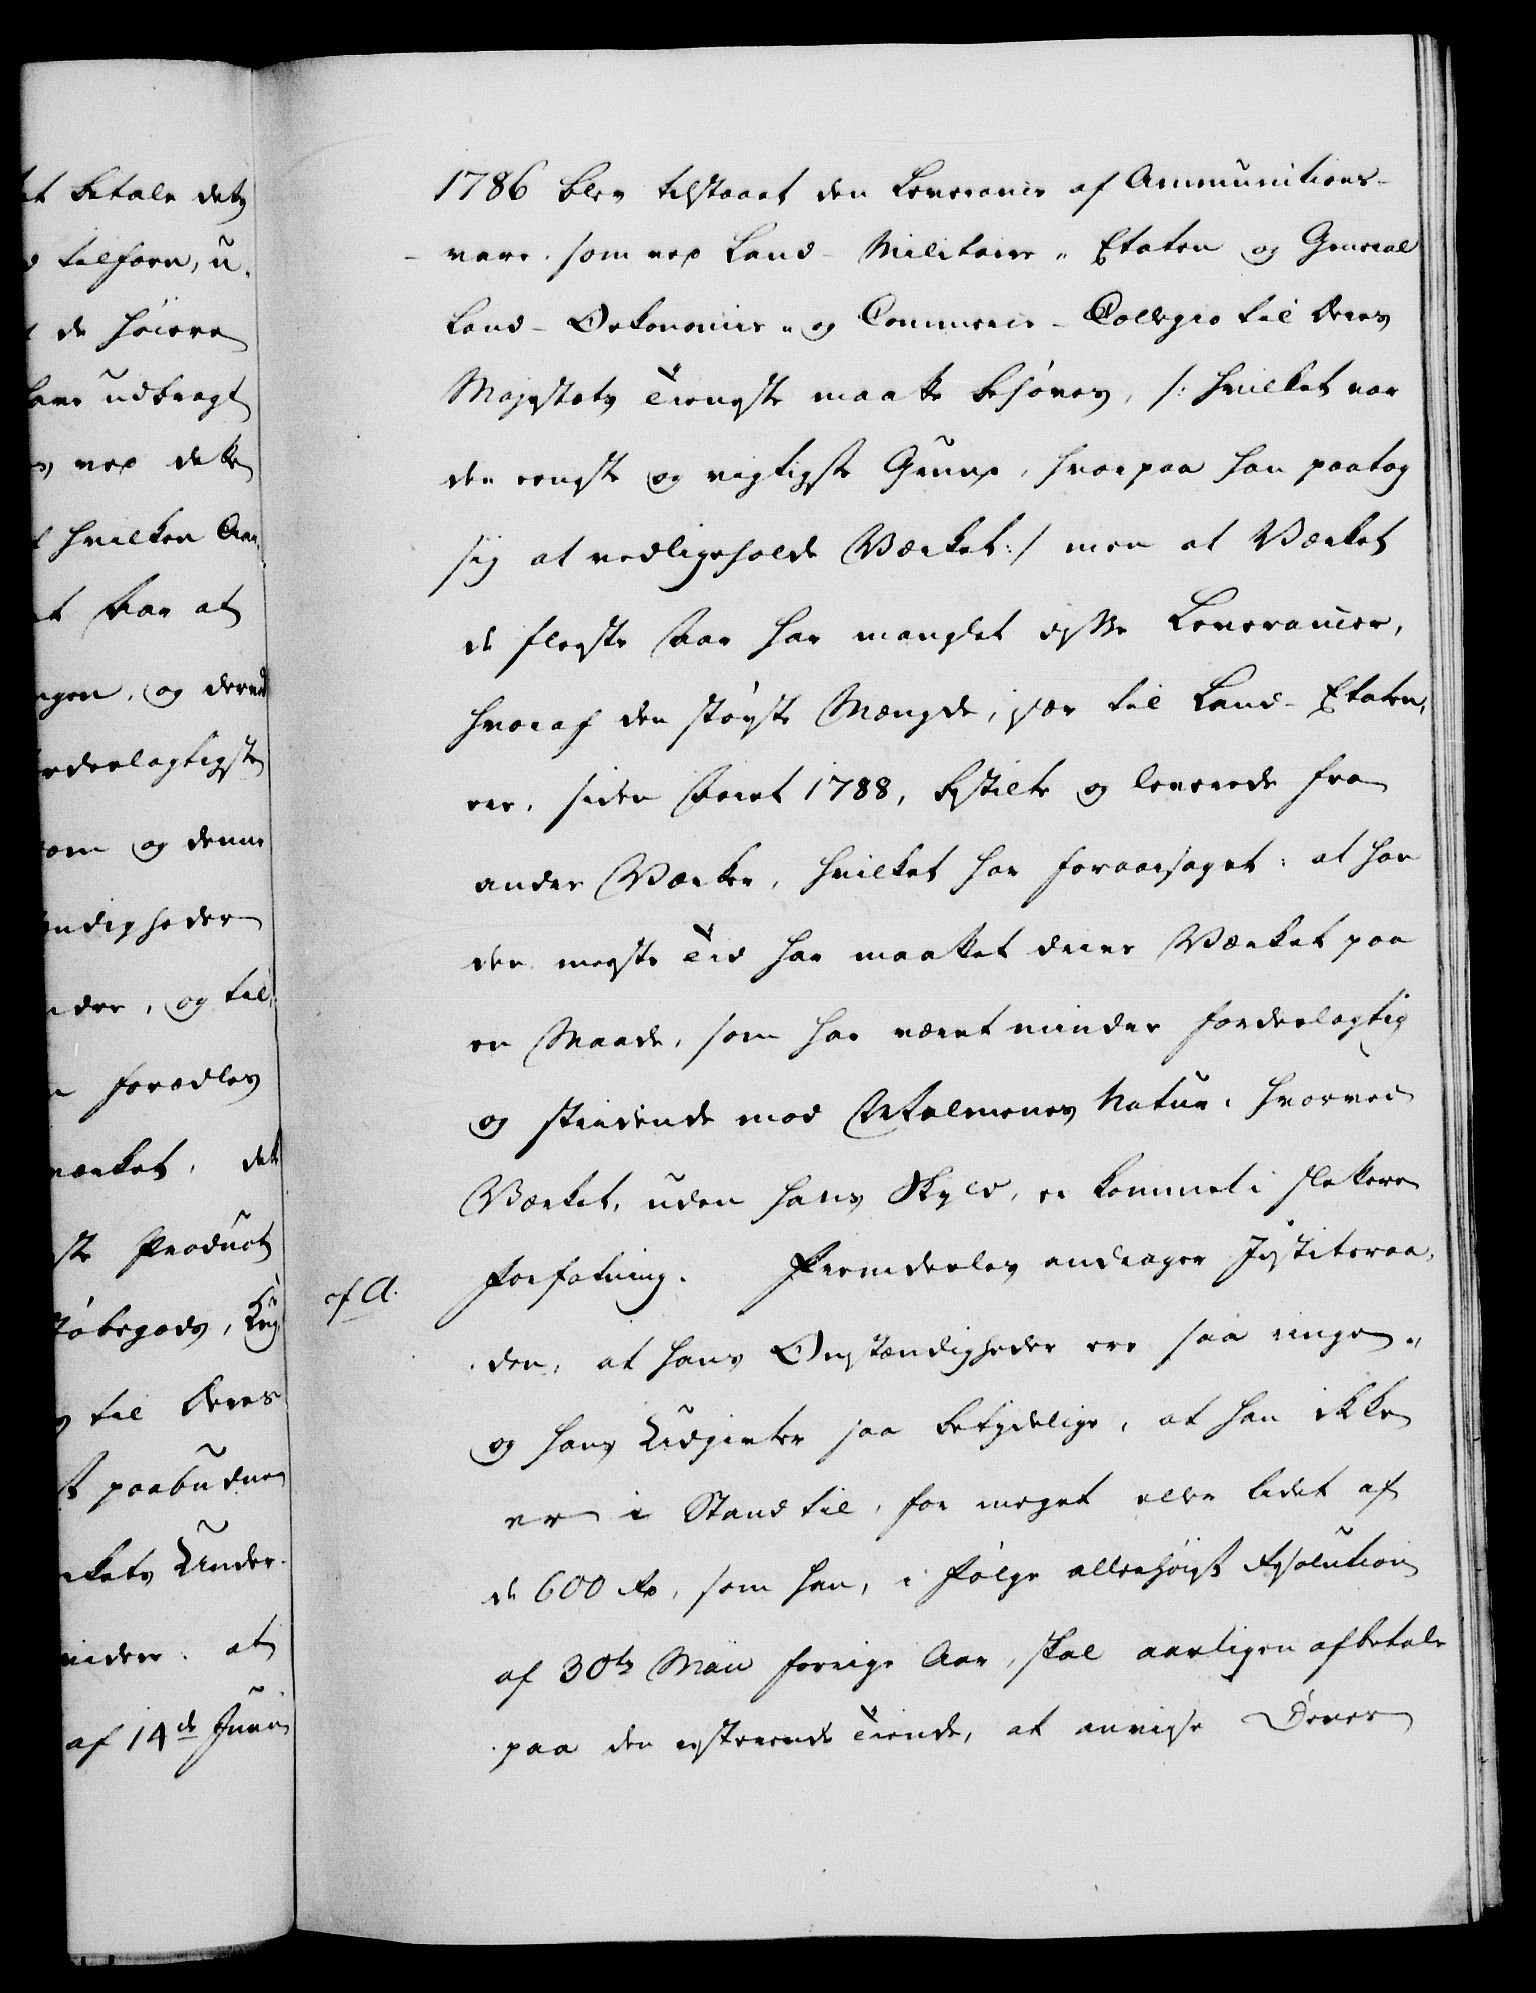 et betale dets
tilforn, u-
de höiere
udbragt
ved dette
hvilken Aar
at
ngen, og derved
rdeelagtigste
som og denne
ndigheder
dre, og til
forædles
værket, det
ste Product
støbegods, Kug
til Deres
paabudne
kets Under-
videre. at
af 14de Junii
1786 blev tilstaaet den Leverance af Ammunitions-
vare, som ved Land-Militaire-Etaten og General
Land-Oekonomie- og Commerce-Collegio til Deres
Majestæts Tieneste maatte behøves, /: hvilket var
den eneste og vigtigste Grund, hvorpaa han paatog
sig at vedligeholde Værket :/ men at Værket
de fleeste Aar har manglet disse Leverancer,
hvoraf den største Mængde, især til Land-Etaten,
ere, siden Aaret 1788, bestilte og leverede fra
andre Værker, hvilket har foraarsaget: at han
den meeste Tid har maattet drive Værket paa
en Maade, som har været mindre fordeelagtig
og stridende mod Malmenes Natur, hvorved
Værket, uden hans Skyld, er kommet i slettere
Forfatning. Fremdeeles andrager Justitsraa-
den, at hans Omstændigheder ere saa ringe
og hans Udgivter saa betydelige, at han ikke
er i Stand til, for meget eller lidet af
de 600 Rd, som han, i Følge allerhøist Resolution
af 30te Maii forrige Aar, skal aarligen afbetale
paa den resterende Tiende, at anvise Deres